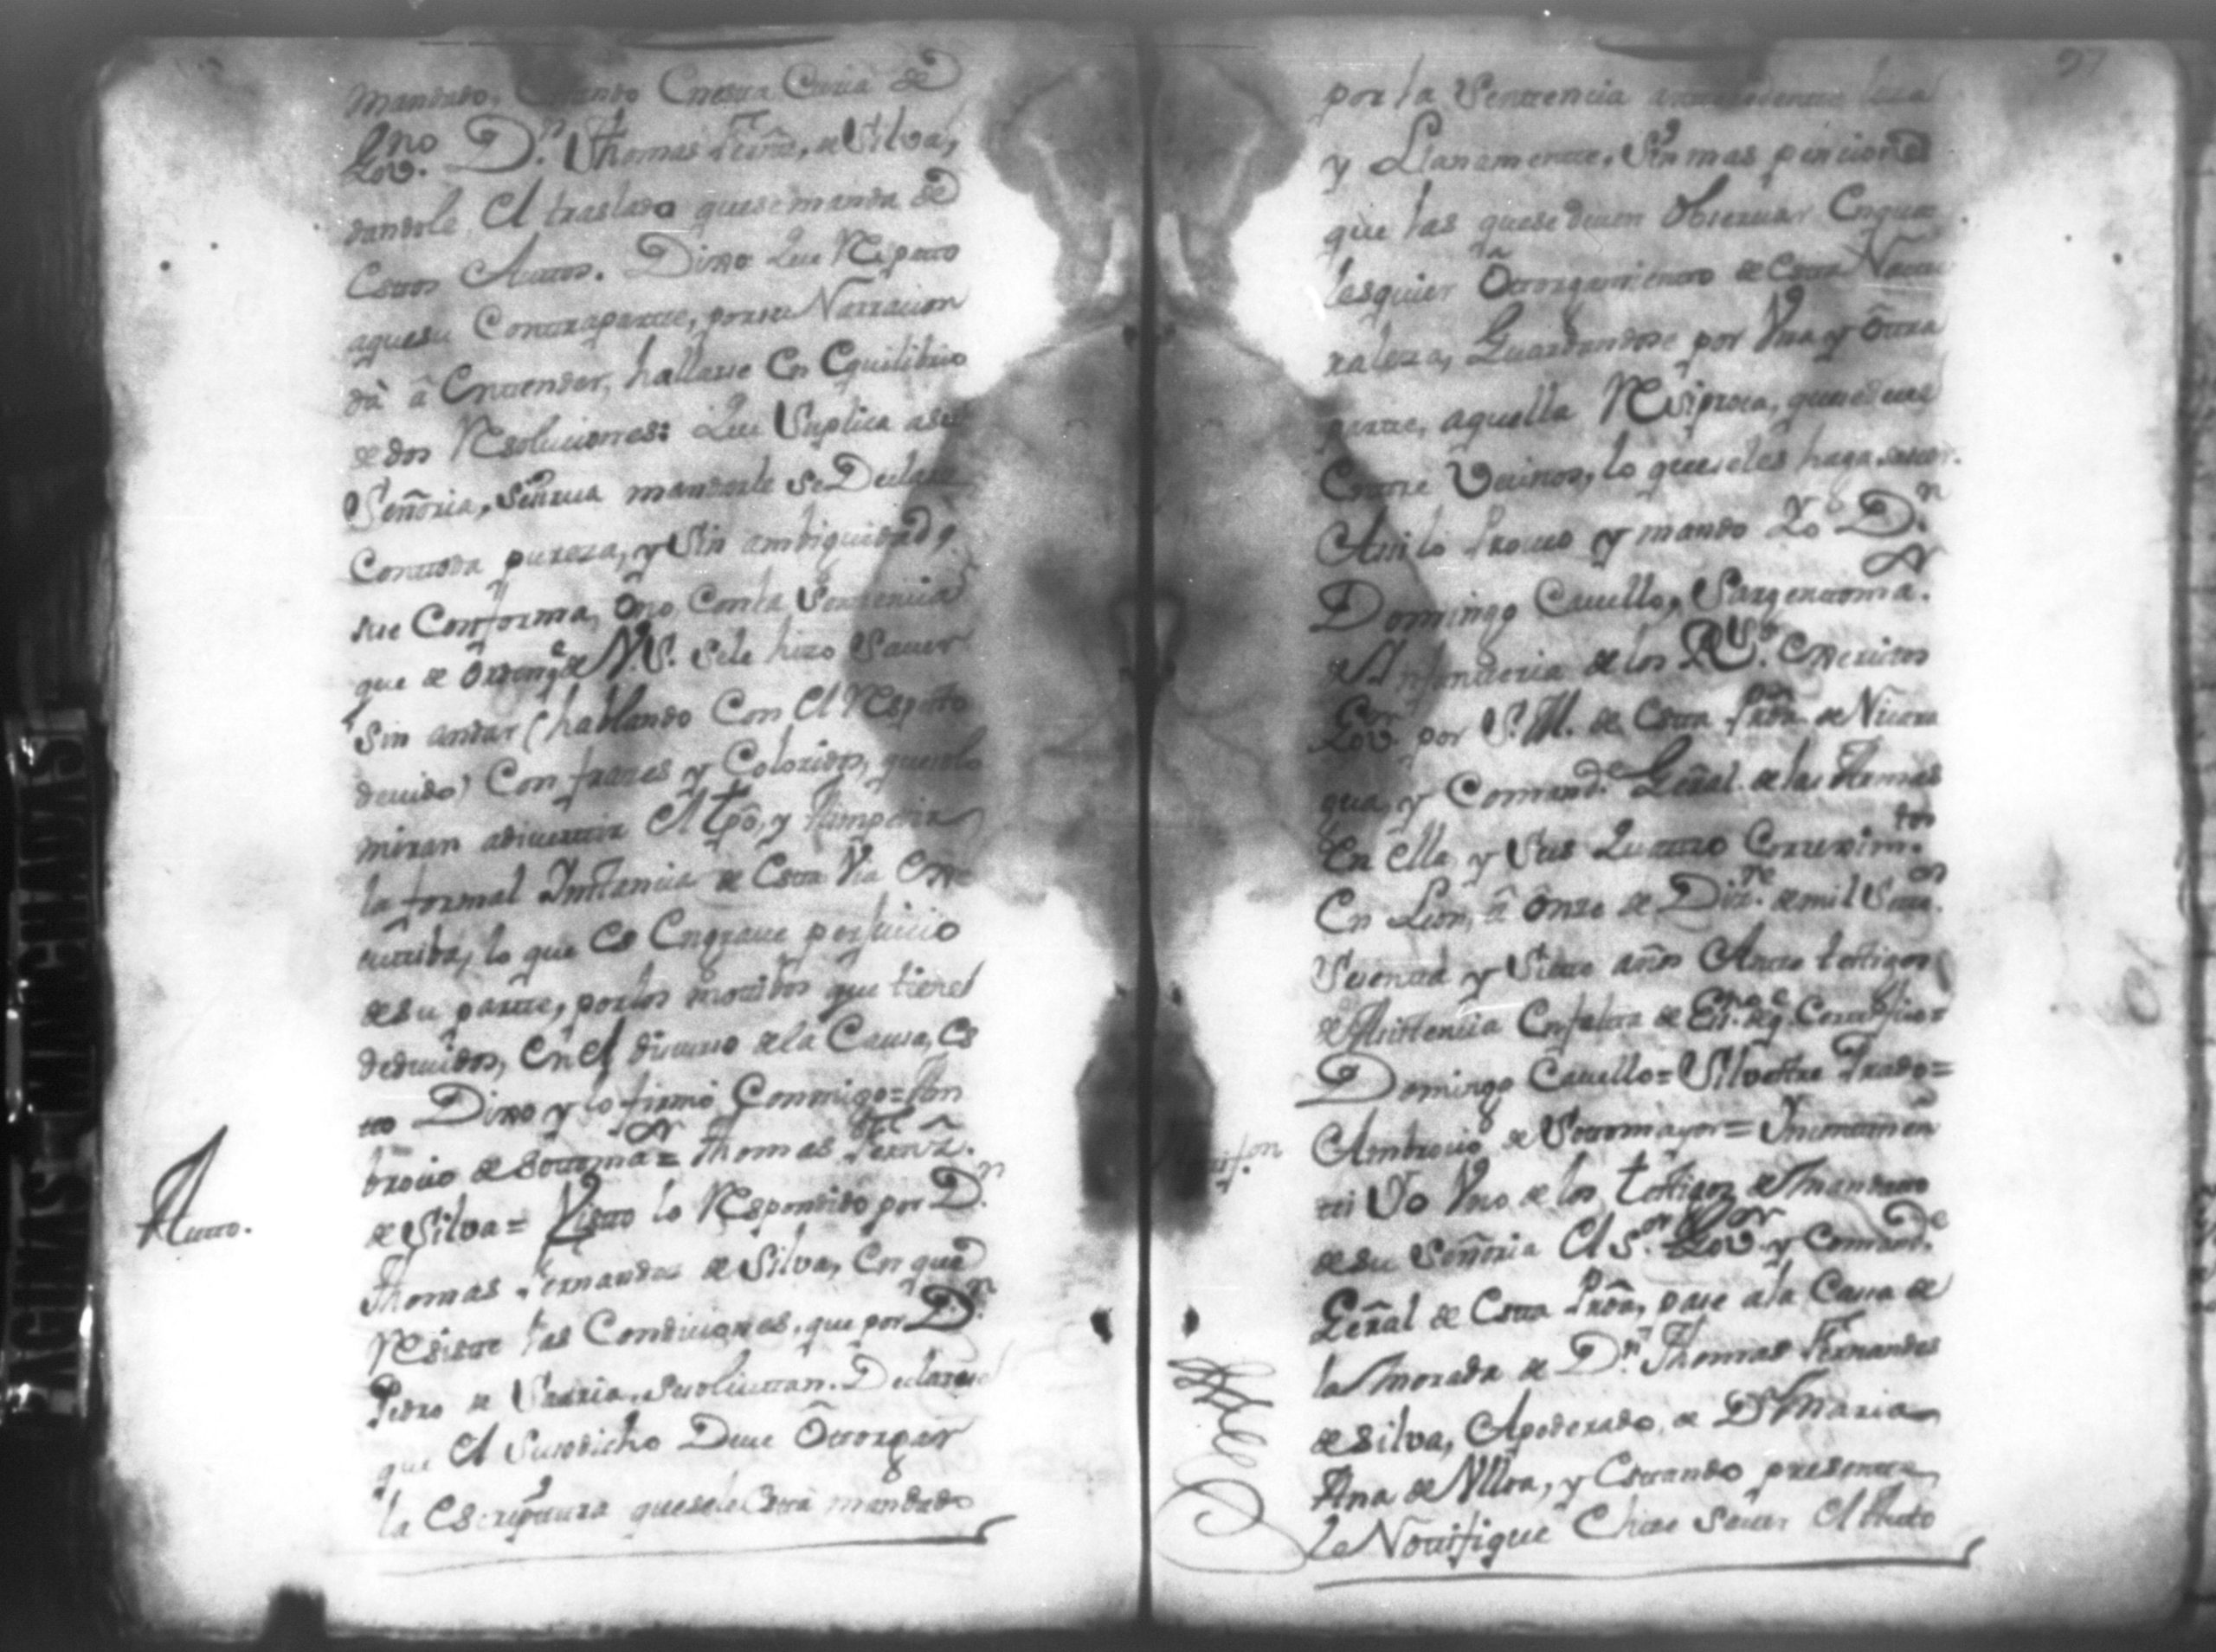 mandado, Estando Enesta Curia de
Gov.no D.n Thomas Fern̄z, de Silva,
dandole El traslado quesemanda de
Estos Autos. Dixo Que Respecto
aquesu Contraparte, porsu Narracion
dà â Entender, hallarse En Equilibrio
de dos Resoluciones: Que Suplica asu
Señoria, Sesirua mandarle se Declare
Contoda pureza, y Sin ambiguidad,
sise Conforma, ôno Conla Sentencia
que de ôrdenq.e de V.S. sele hizo Sauer
sin andar (hablando Con El Respeto
deuido) Con frazes y Coloridos, quesolo
miran adiuertir El tpô, y Aimpedir
la formal Instancia de Esta Via Exe
cutiba, lo que Es Engraue perjuicio
desu parte, porlos motibos que tienel
deducidos, En El discurso dela Causa, Es
to Dixo y lo firmó Conmigo = Am
brocio de Sottoma.or = Thomas Fern̄z.
de Silva = Visto lo Respondido por D.n
Auto.
Thomas Fernandes de Silva, En que
Resiste las Condiciones, que por D.n
Pedro de Sarria, sesolicitan. Declarase
que El Susodicho Deue Ôtorgar
la Escriptura quesele Está mandado
97
por la Sentencia antesedente lisa
y Llanamente, Sin mas pencion
que las quese deuen Obseruar Enqua
lesquier Ôtorgamiento de Esta Natu
raleza, Guardandose por Una y ôtra
parte, aquella Resiproca, quesedeue
Entre Vecinos, lo queseles haga sauer.
Asi lo Proueo y mando Yo D.n
Domingo Cauello, Sargentoma.or
de Infanteria de los R.s Exercitos
Gov.or por S.M. de Esta Prôa de Nicara
gua, y Comand.e Geñal. de las Armas
En ella, y Sus Quatro Correxim.tos
En Leon, â ônze de Diz.re demil Sete.os
Sesenta y Siete años Ante testigos
de Asistencia Enfalta de Es.no deq.e Certifico =
Domingo Cauello = Silvestre Prado =
Ambrocio de Sotomayor = Yncontinen
ti Yo Uno de los testigos de Mandato
desu Señoria El S.or Gov.or y Comand.te
Geñal de Esta Prôa, pase ala Casa de
la Morada de D.n Thomas Fernandes
de Silva, Apoderado, de D.a Maria
Ana de Ulloa, y Estando presente,
Le Notifique E hise sauer El Auto